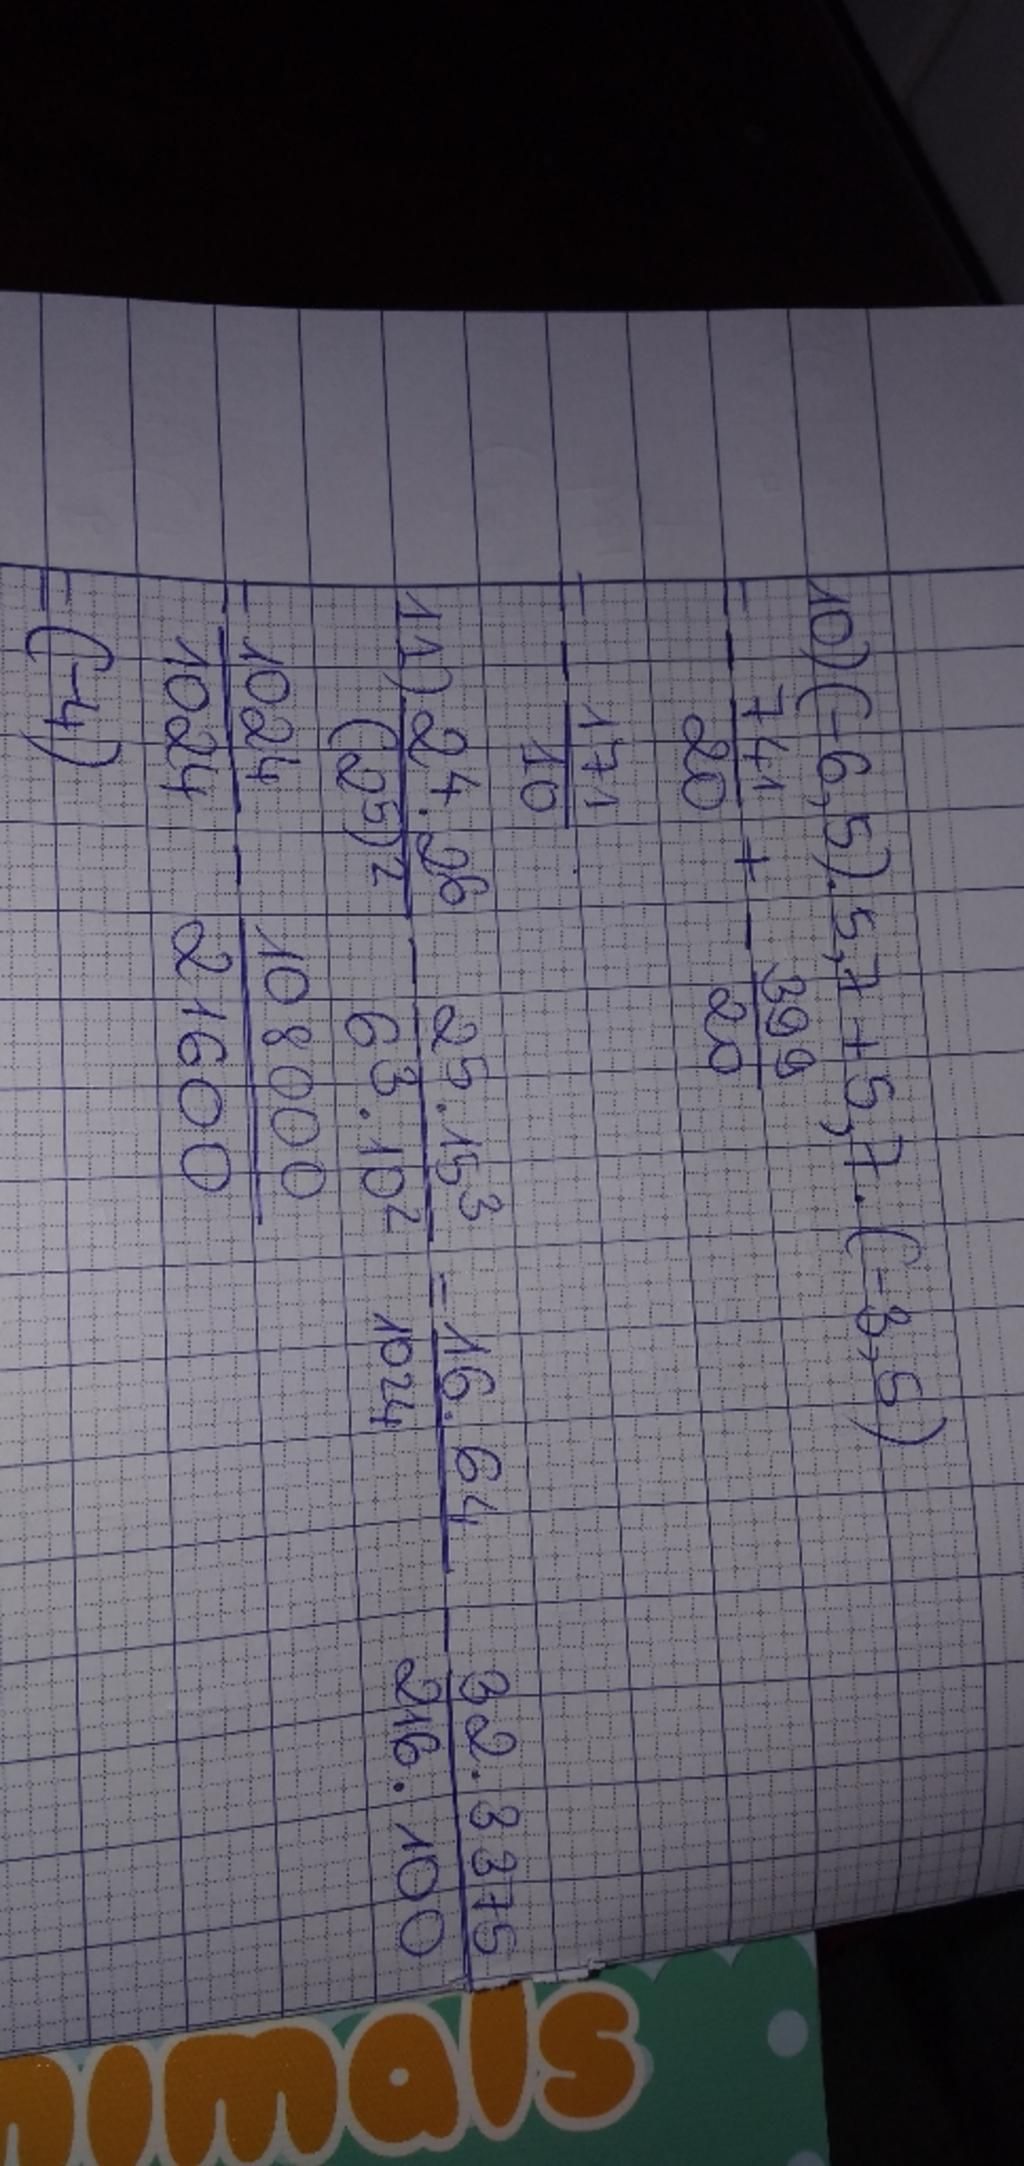 10) (-6,5).5,7+5,7.(-3,5)
= - 741/20 + - 399/20
= - 171/10
11) 2⁴.2⁶/(2⁵)² - 2⁵.15³/6³.10² = 16.64/1024 - 32.3375/216.100
= 1024/1024 - 108000/21600
= (-4)
nimals